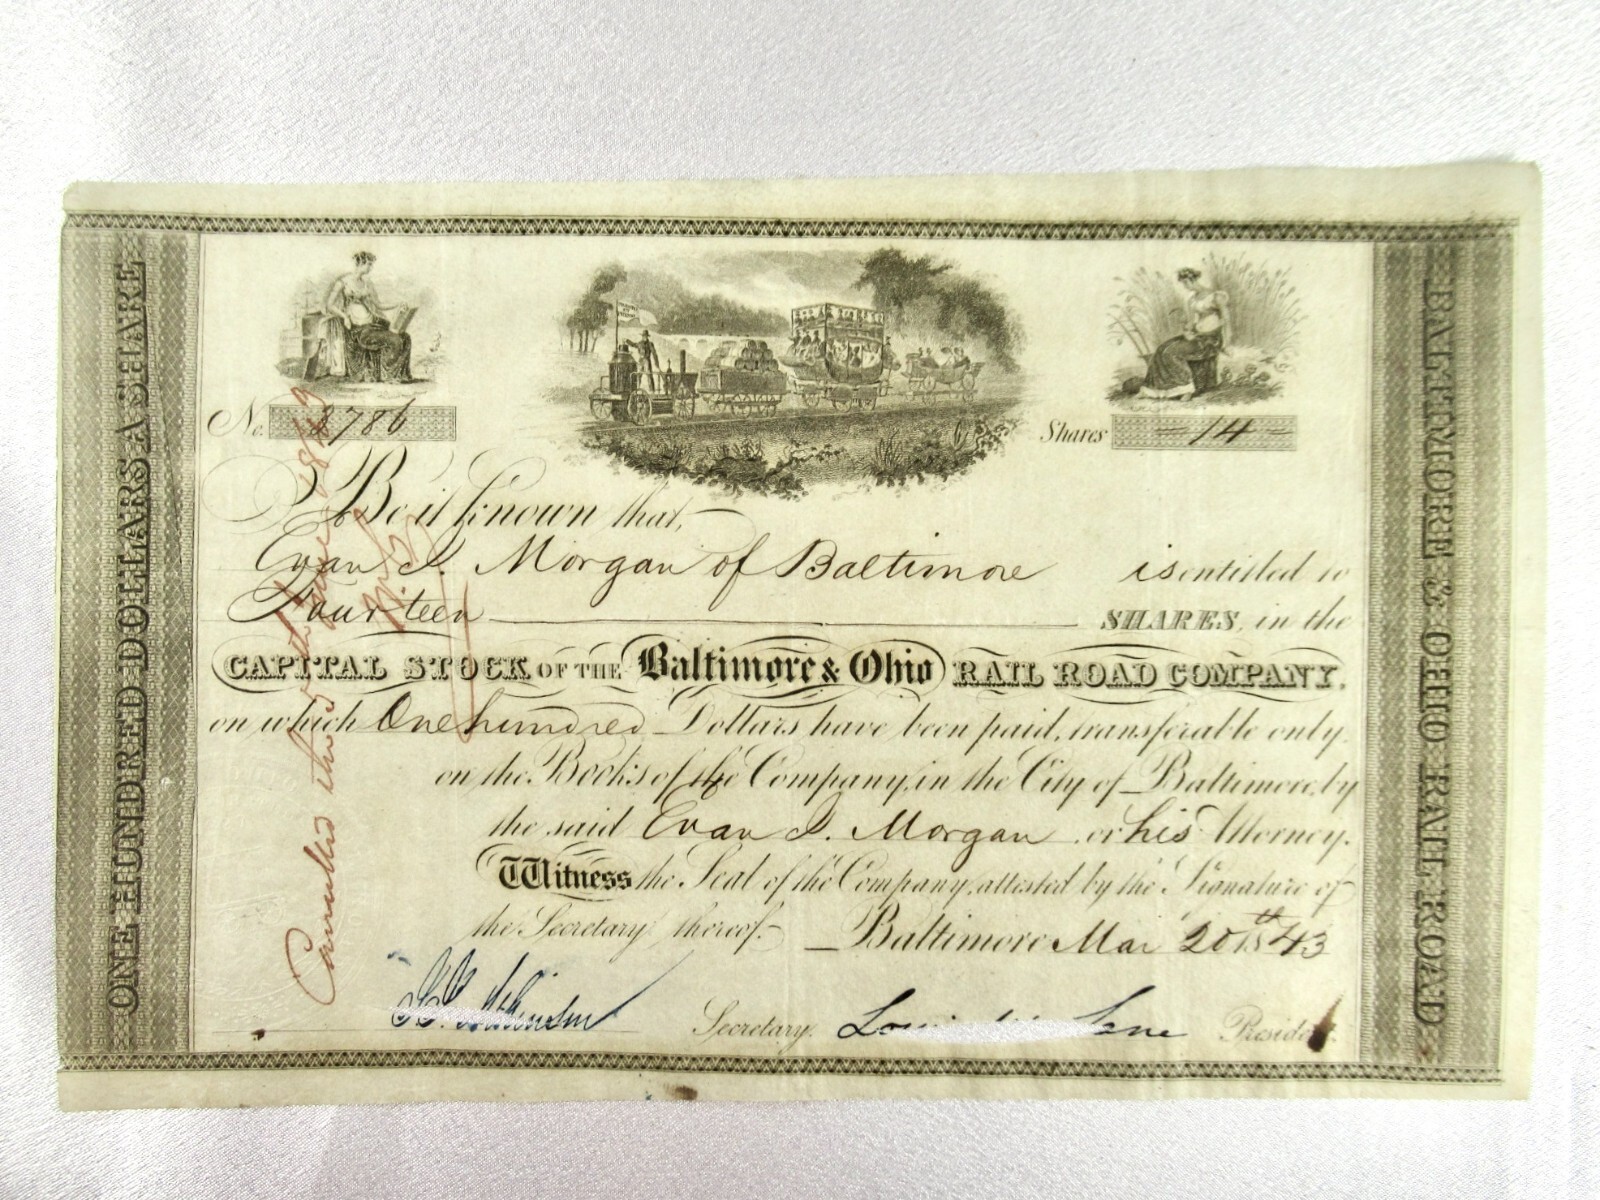 ONE HUNDRED DOLLARS A SHARE
No. 2786
Shares 14
Be it known that,
Evan I. Morgan of Baltimore is entitled to
Fourteen SHARES, in the
CAPITAL STOCK OF THE Baltimore & Ohio RAIL ROAD COMPANY,
on which One hundred Dollars have been paid, transferable only
on the Books of the Company, in the City of Baltimore, by
the said Evan I. Morgan or his Attorney.
Witness the Seal of the Company, attested by the Signature of
the Secretary thereof.
Baltimore Mar 20th 1843
Secretary. Louis Lane President.
Cancelled this 5
BALTIMORE & OHIO RAIL ROAD